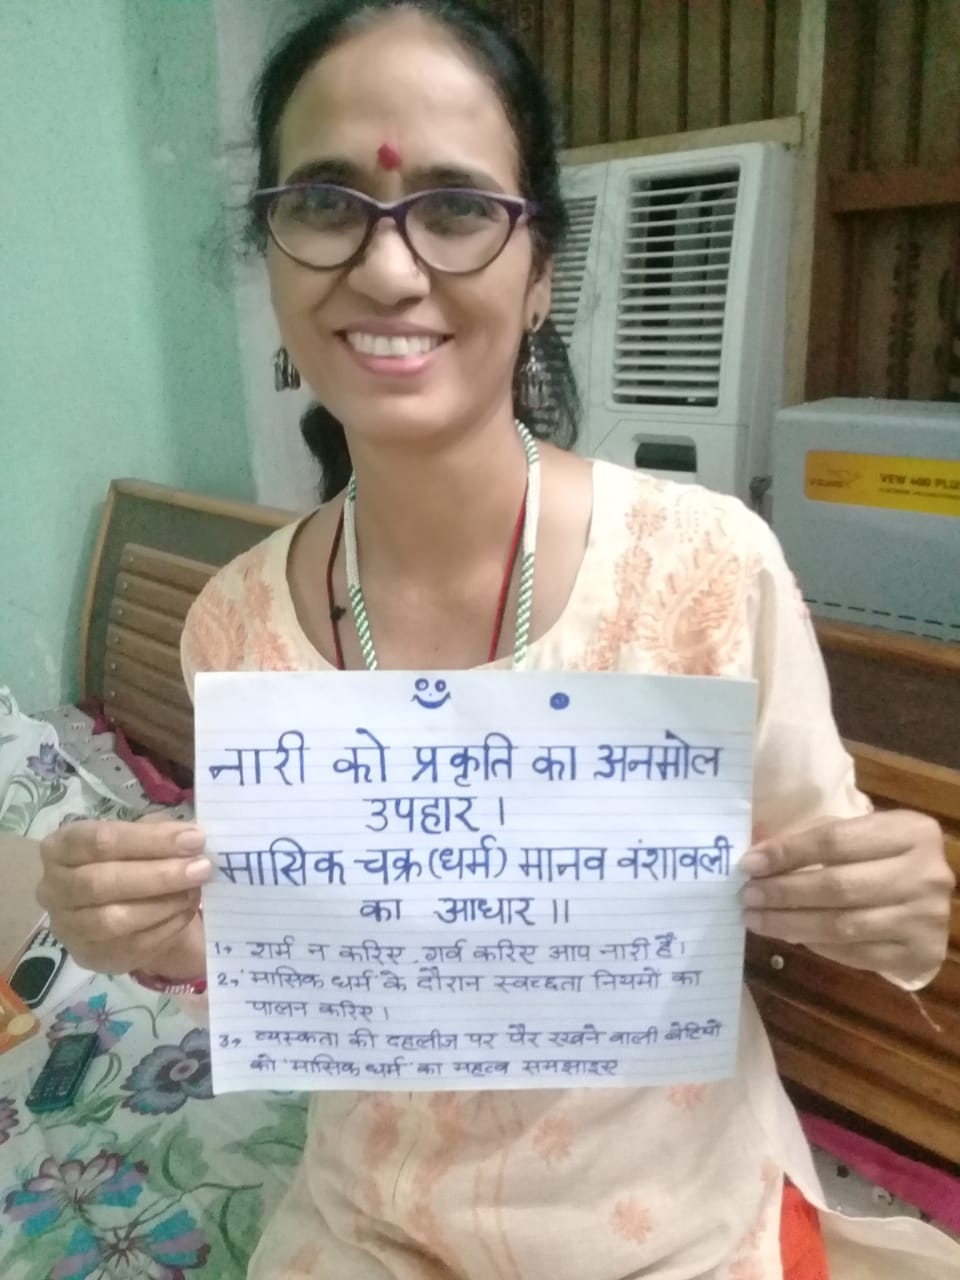 नारी को प्रकृति का अनमोल
उपहार ।
मासिक चक्र (धर्म) मानव वंशावली
का आधार ।।
1, शर्म न करिए. गर्व करिए आप नारी हैं।
2, 'मासिक धर्म' के दौरान स्वच्छता नियमों का
पालन करिए।
3, व्यस्कता की दहलीज पर पैर रखने वाली बेटियों
को 'मासिक धर्म' का महत्व समझाइए
VEW 400 PLUS